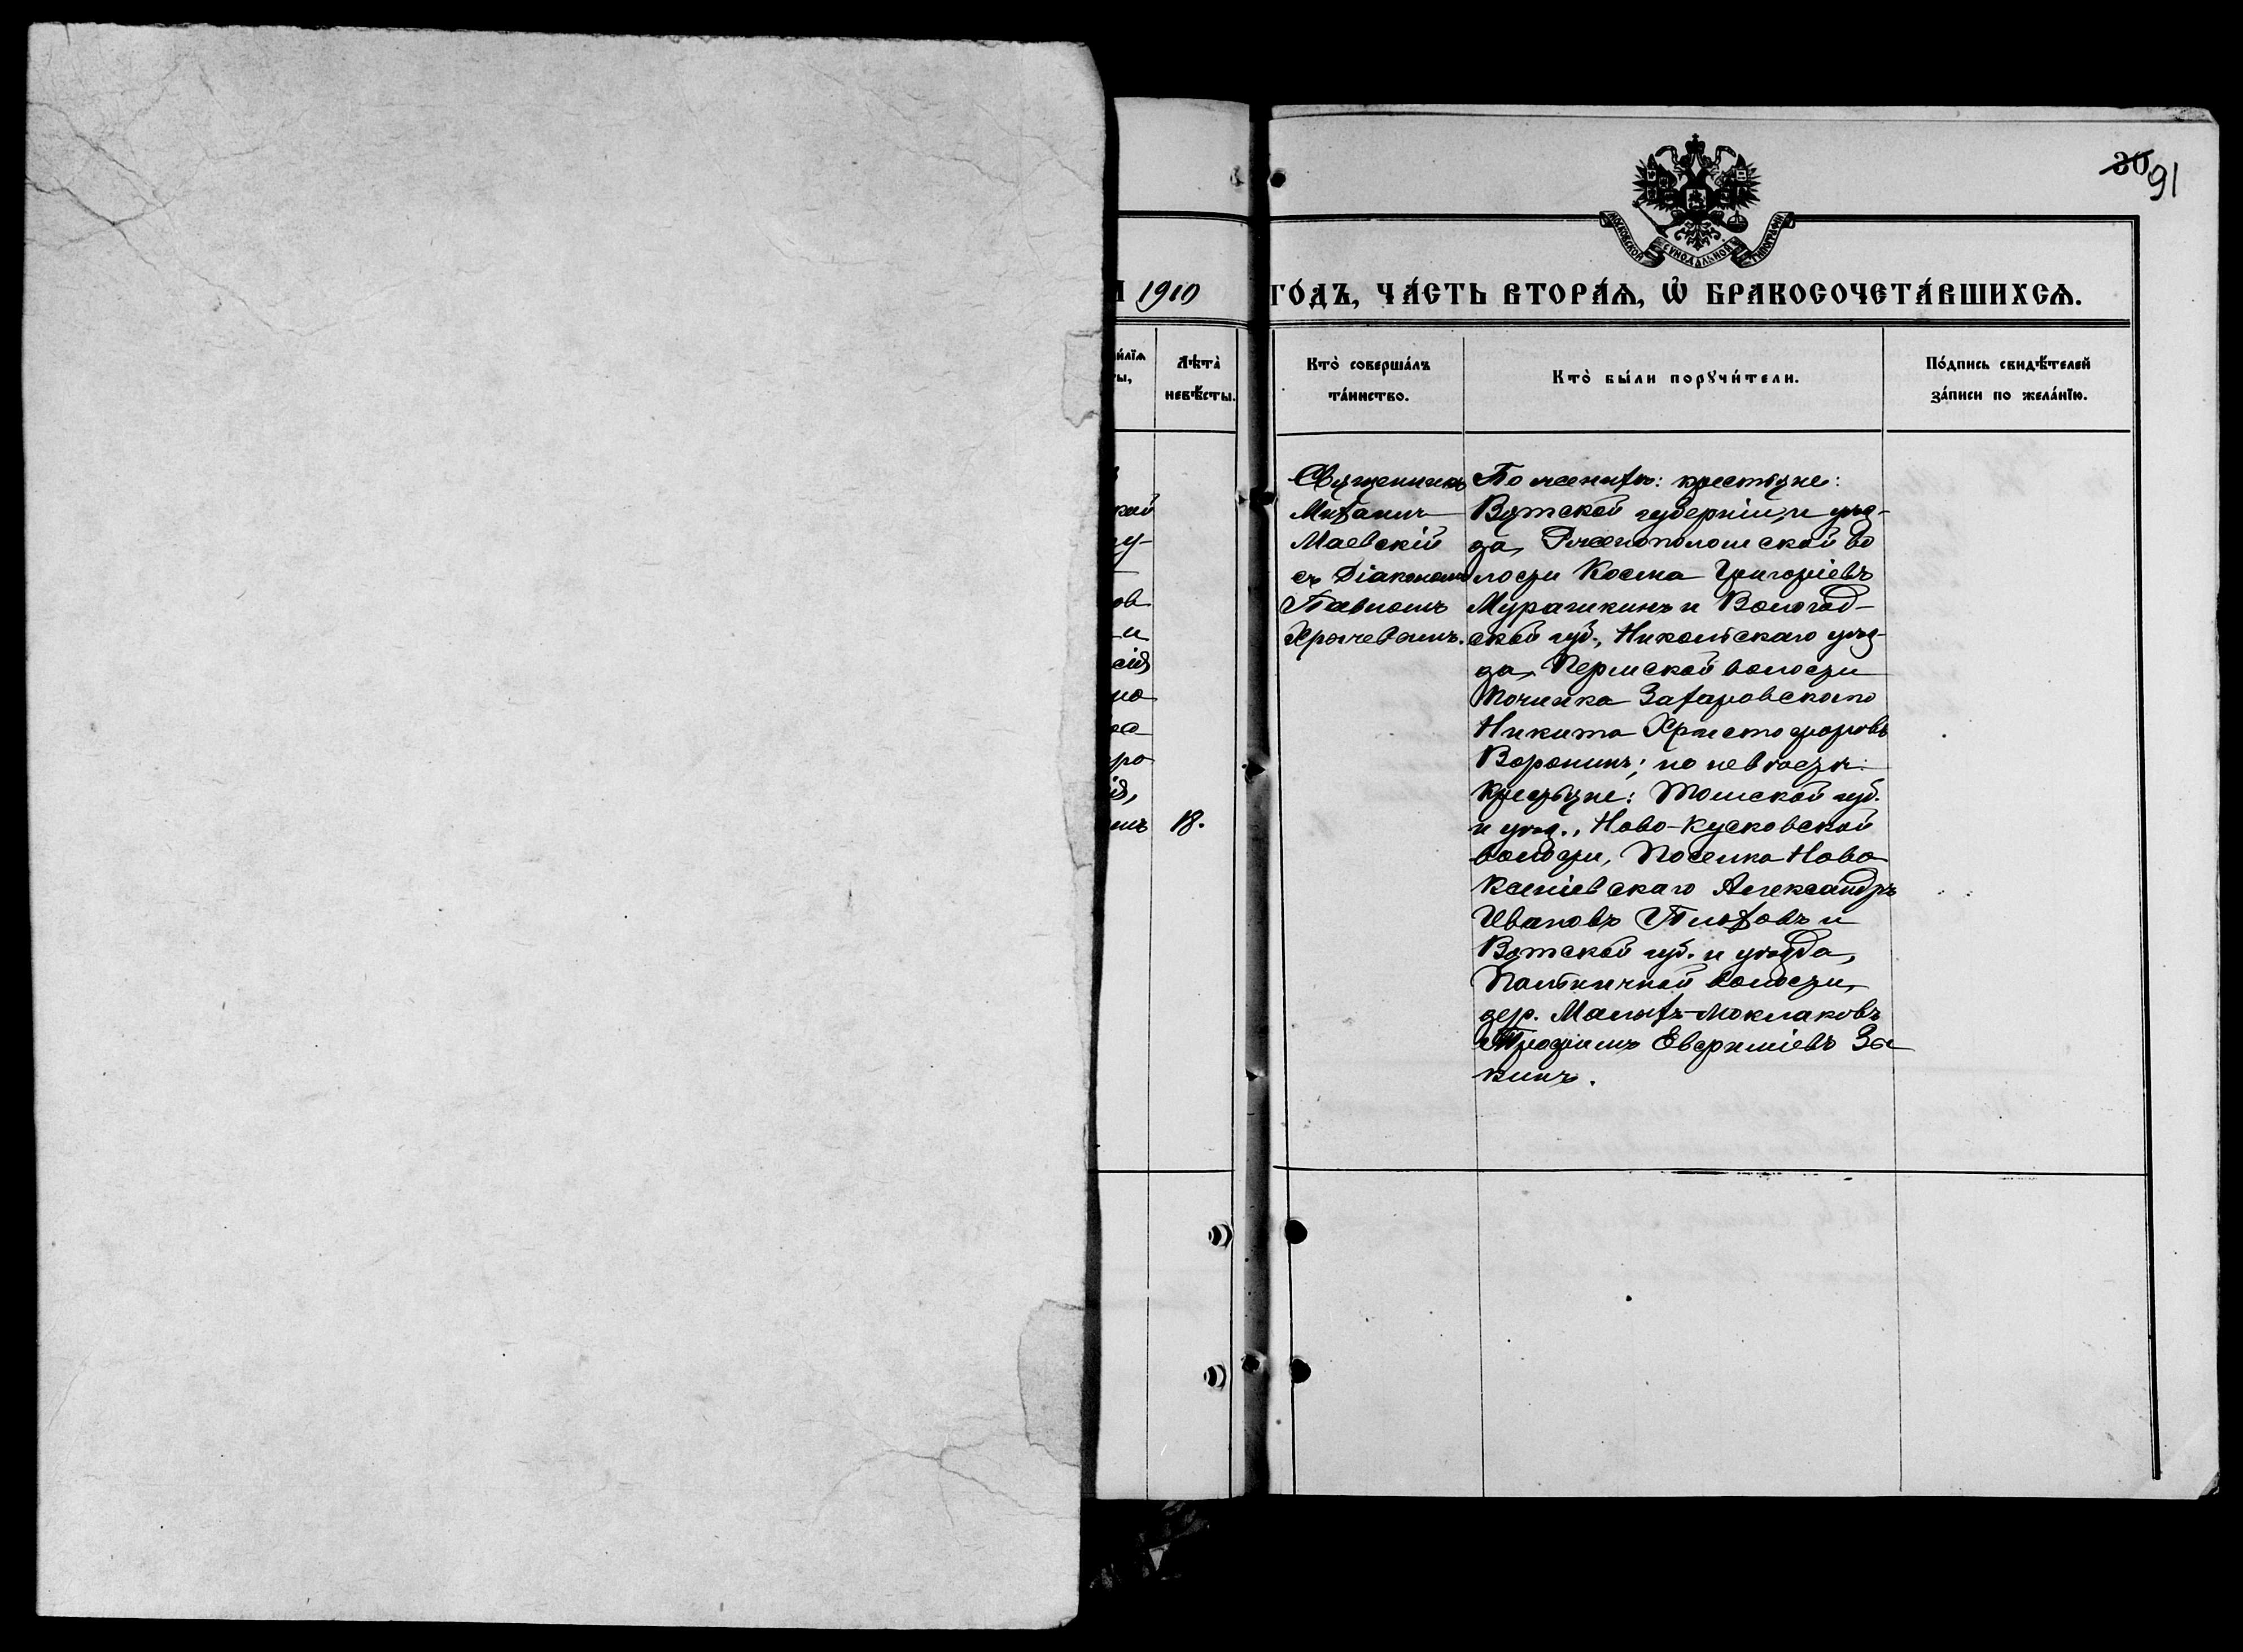 30 91
МОСКОВСКОЙ СУНОДАЛЬНОЙ ТИПОГРАФІИ
1910 ГО́ДЪ, ЧА́СТЬ ВТОРА́Ѧ, Ѡ҆ БРАКОСОЧЕТА́ВШИХСѦ.
Лѣта̀
невѣ́сты.
Кто̀ соверша́лъ
та́инство.
Кто̀ бы́ли порꙋчи́тели.
По́дпись свидѣ́телей
за́писи по жела́нїю.
кой
ов
и
сія
ро
18.
Священникъ
Михаилъ
Маевскій
съ Діакономъ
Павломъ
Хрычевымъ.
По женихѣ: крестьяне:
Вятской губерніи, и уѣз-
да, во
лости Косма Григоріевъ
Мурашкинъ и Вологод-
ской губ., Никольскаго уѣз-
да, Пермской волости
Починка Захаровскаго
Никита Христофоровъ
Воронинъ; по невѣстѣ:
крестьяне: Томской губ.
и уѣз., Ново-Кусковской
волости, Поселка Ново
Ксеніевскаго Александръ
Ивановъ Плоховъ и
Вятской губ. и уѣзда,
волости,
дер. Малыхъ-Моклаковъ
Трофимъ Евсриміевъ Зы
кинъ.